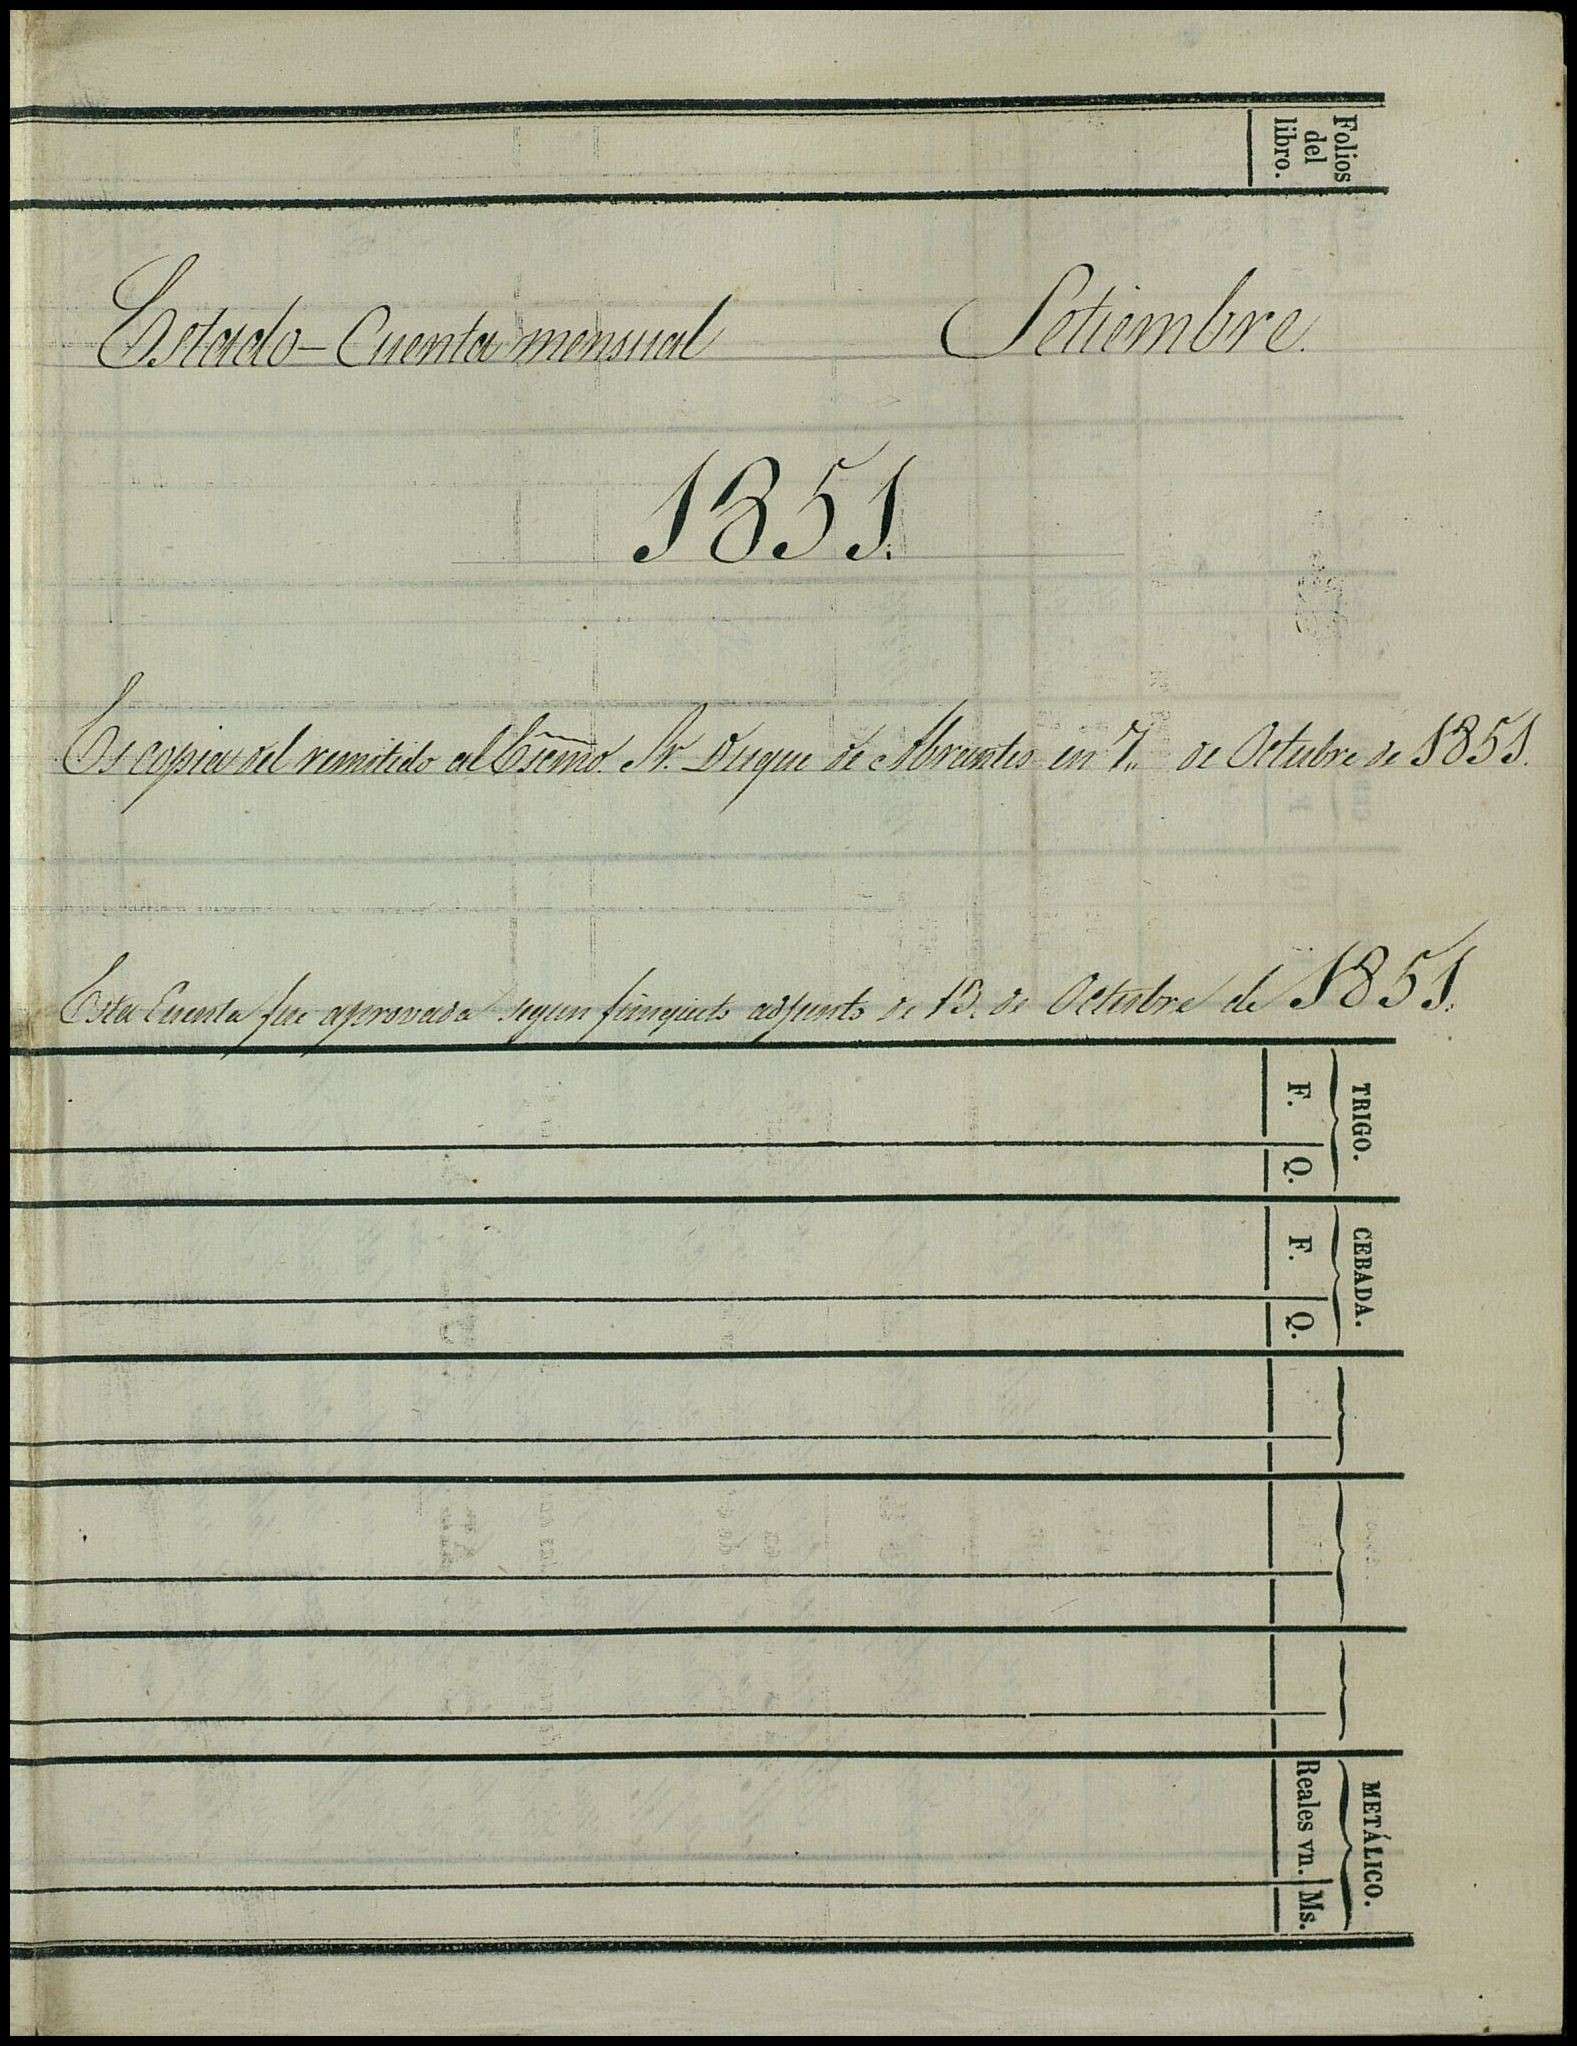 Folios
del
libro.
Estado-Cuenta mensual Setiembre.
1851.
Es copia del remitido al Escmo. Sr. Duque de Abrantes en 7,, de Octubre de 1851.
Esta Cuenta fue aprovada segun finiquito adjunto de 13. de Octubre de 1851.
TRIGO.
F. Q.
CEBADA.
F. Q.
METÁLICO.
Reales vn. Ms.